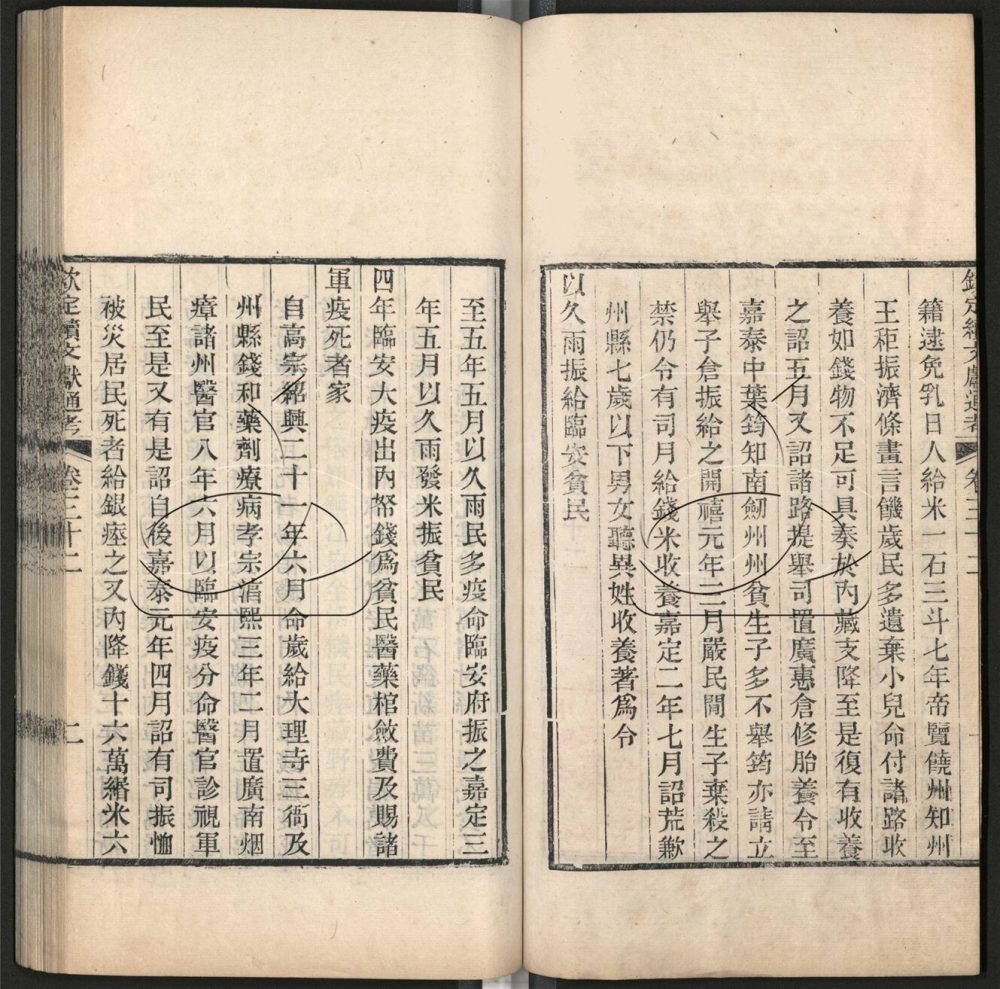 欽定續文獻通考 卷三十二
籍逮免乳日人給米一石三斗七年帝覽饒州知州
王秬振濟條畫言饑歲民多遺棄小兒命付諸路收
養如錢物不足可具奏於內藏支降至是復有收養
之詔五月又詔諸路提舉司置廣惠倉修胎養令至
嘉泰中葉筠知南劒州州貧生子多不舉筠亦請立
舉子倉振給之開禧元年三月嚴民間生子棄殺之
禁仍令有司月給錢米收養嘉定二年七月詔荒歉
州縣七歲以下男女聽異姓收養著為令
以久雨振給臨安貧民
至五年五月以久雨民多疫命臨安府振之嘉定三
年五月以久雨發米振貧民
四年臨安大疫出內帑錢為貧民醫藥棺斂費及賜諸
軍疫死者家
自高宗紹興二十一年六月命歲給大理寺三衙及
州縣錢和藥劑療病孝宗湻熙三年二月置廣南烟
瘴諸州醫官八年六月以臨安疫分命醫官診視軍
民至是又有是詔自後嘉泰元年四月詔有司振恤
被災居民死者給銀瘞之又內降錢十六萬緡米六
欽定續文獻通考 卷三十二